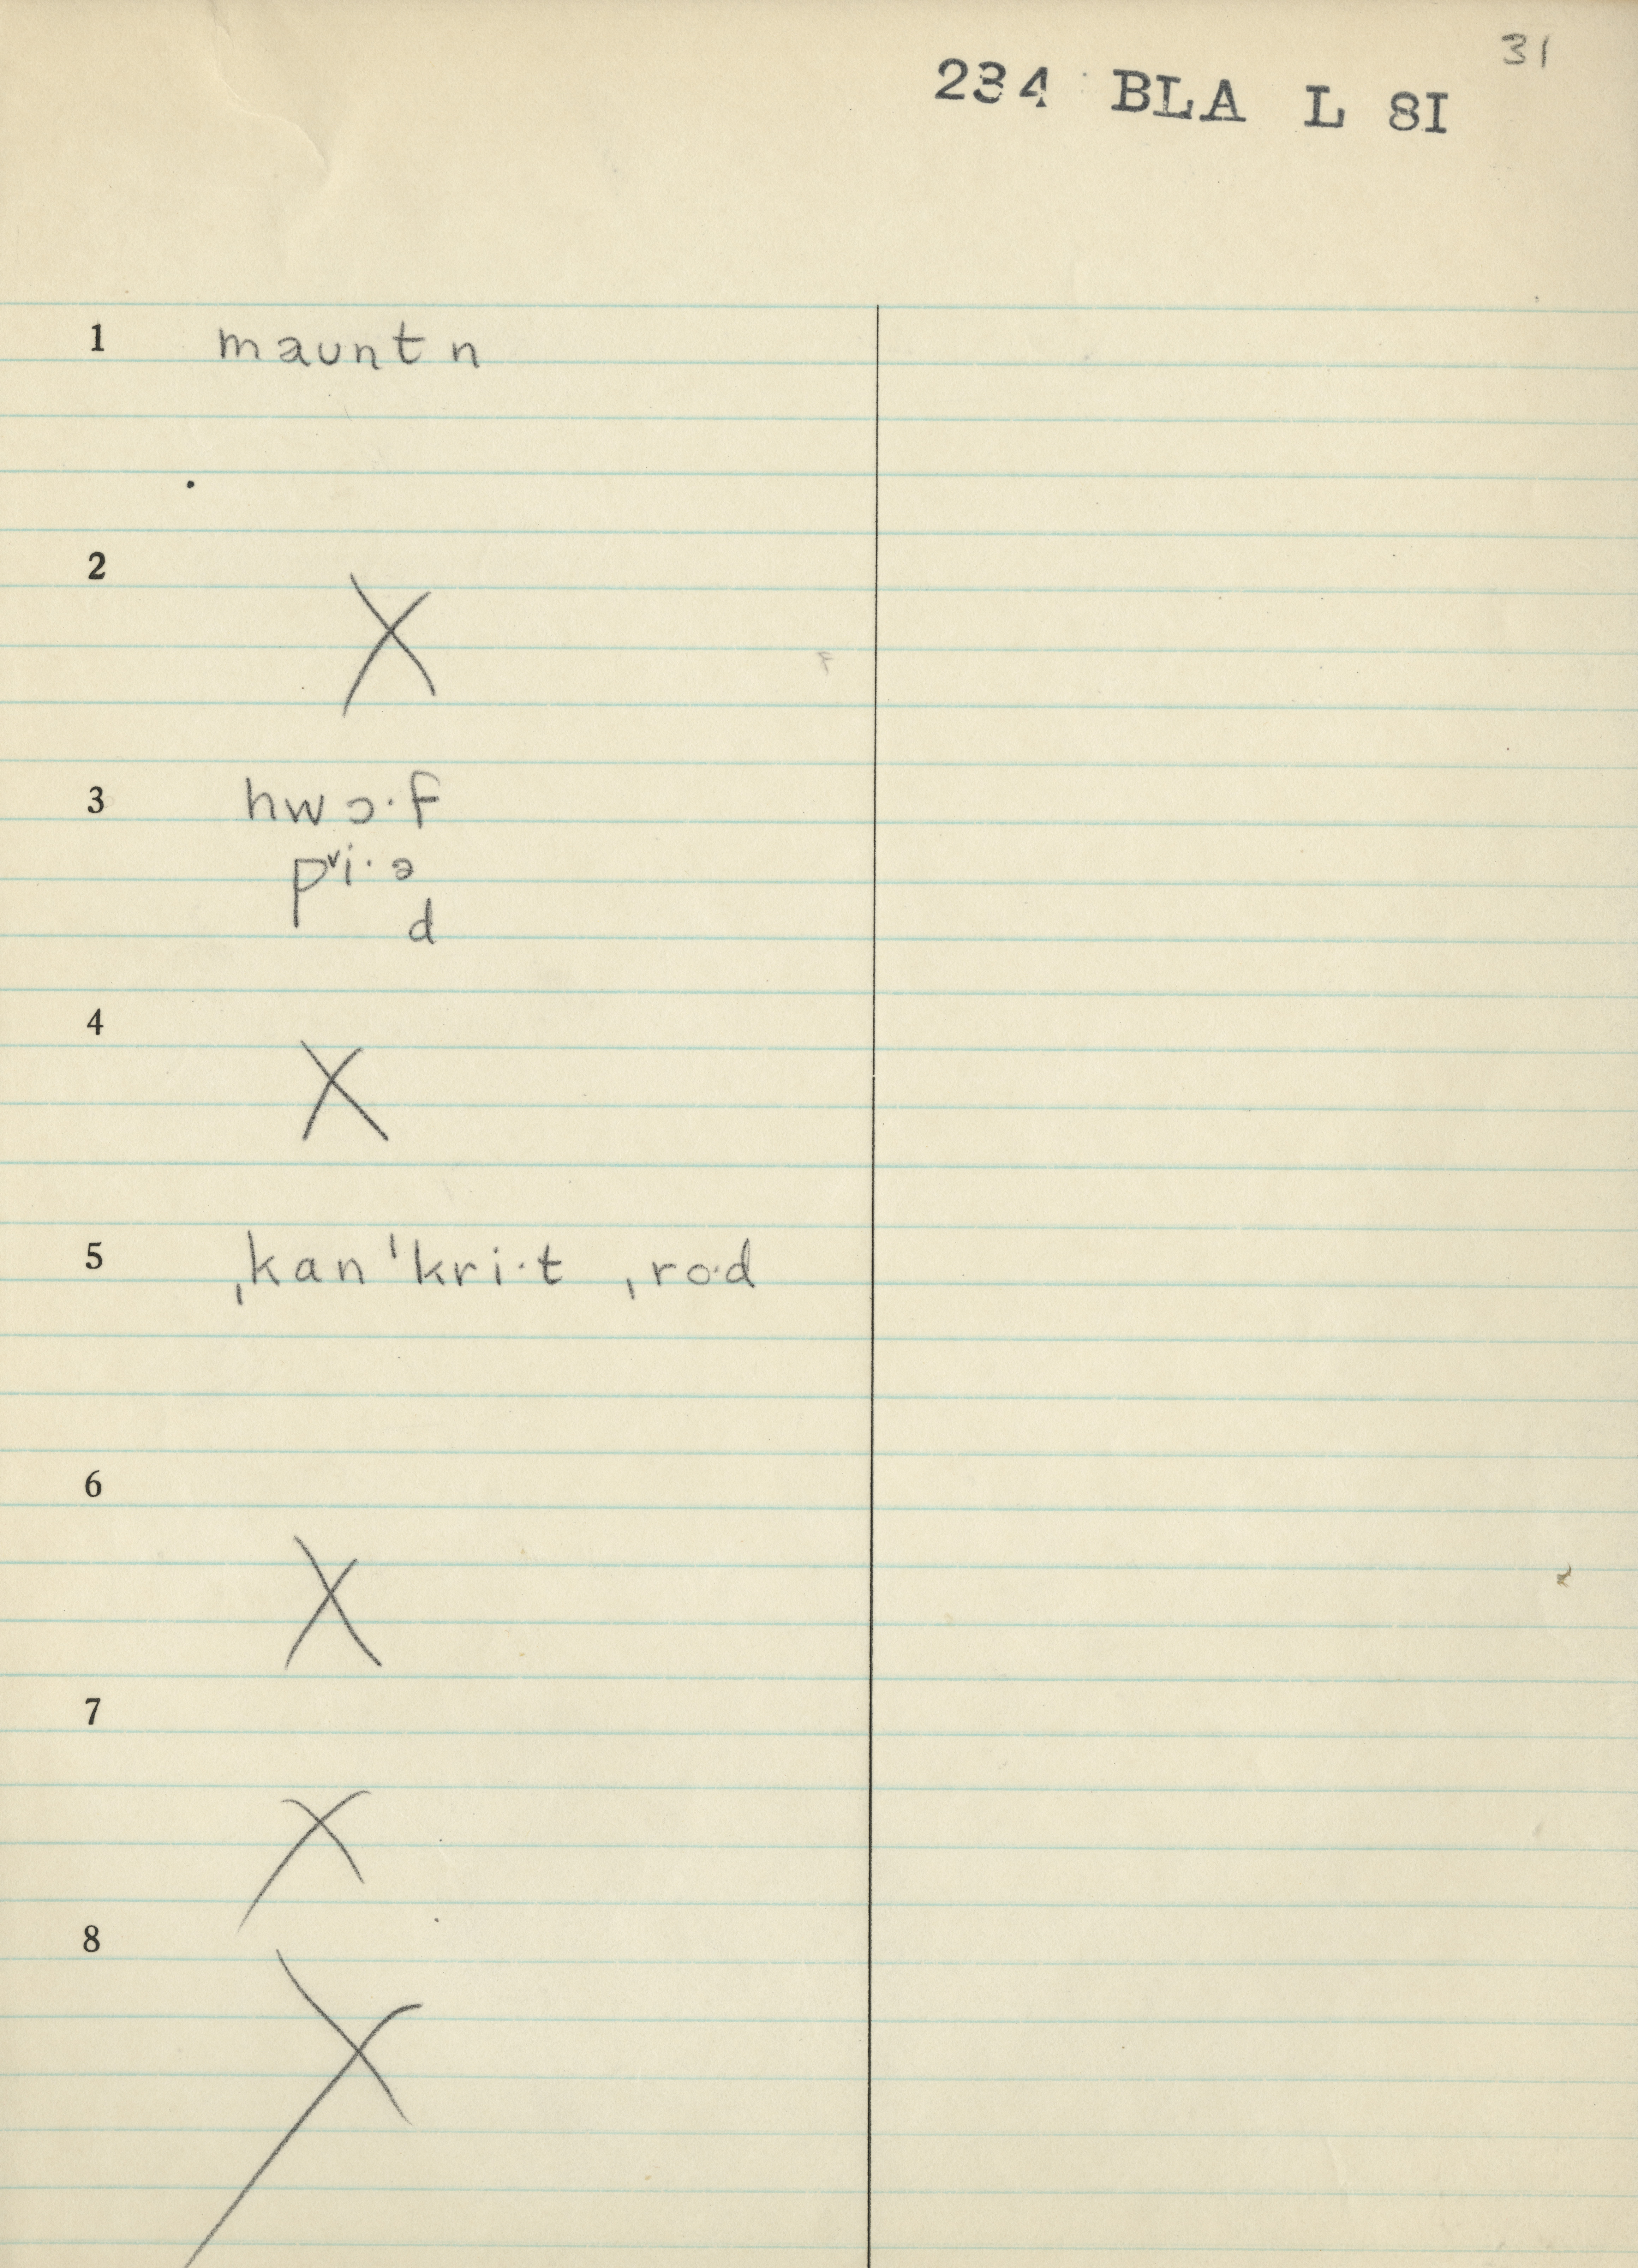 31
234 BLA L 8I
1 mauntn
2 X
3 hwɔ·f
pᵛi·ə
d
4 X
5 ˌkanˈkri·t ˌro·d
6 X
7 X
8 X